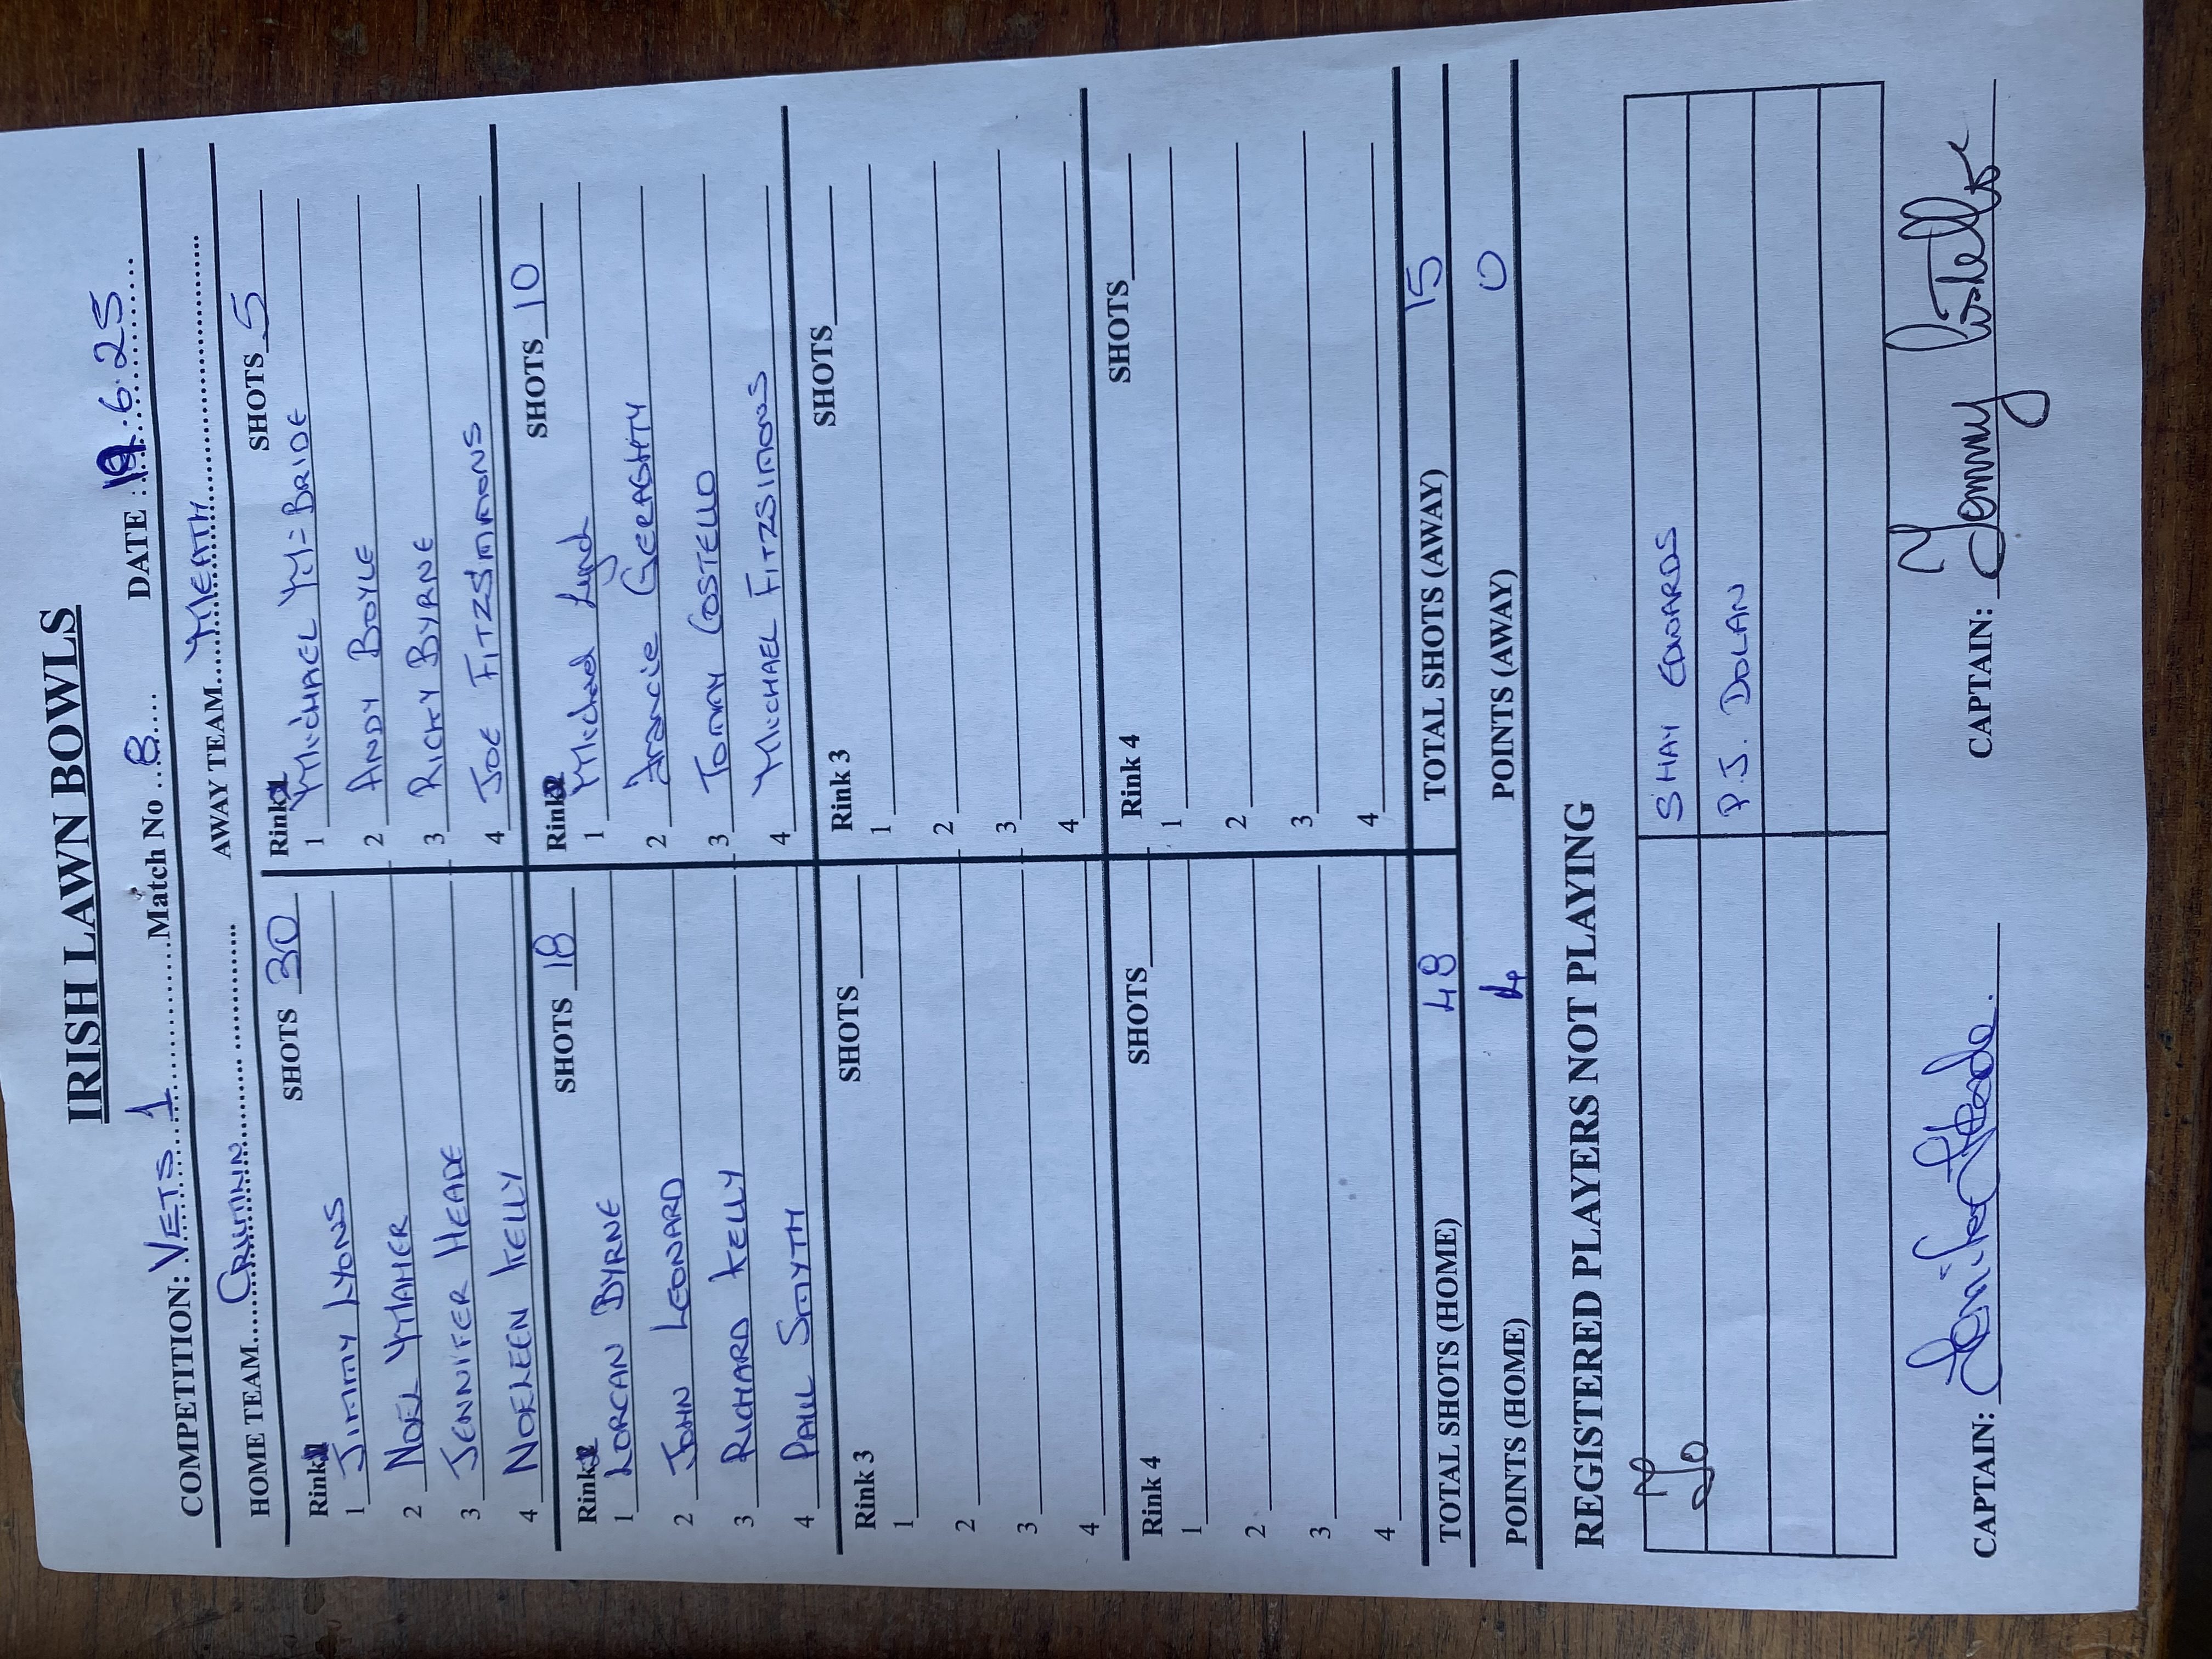 IRISH LAWN BOWLS
COMPETITION: VETS 1 Match No 8 DATE 19.6.25
HOME TEAM CRUMLIN AWAY TEAM MEATH
SHOTS 30 SHOTS 5
Rink Rink
1 JIMMY LYONS 1 MICHAEL Mc BRIDE
2 NOEL MAHER 2 ANDY BOYLE
3 JENNIFER HEADE 3 RICHY BYRNE
4 NOELEEN KELLY 4 JOE FITZSIMMONS
SHOTS 18 SHOTS 10
Rink Rink
1 LORCAN BYRNE 1 Michael Lynch
2 JOHN LEONARD 2 Francie GERAGHTY
3 RICHARD KELLY 3 TOMMY COSTELLO
4 PAUL SMYTH 4 MICHAEL FITZSIMONS
Rink 3 SHOTS Rink 3 SHOTS
1 1
2 2
3 3
4 4
Rink 4 SHOTS Rink 4 SHOTS
1 1
2 2
3 3
4 4
TOTAL SHOTS (HOME) 48 TOTAL SHOTS (AWAY) 15
POINTS (HOME) 4 POINTS (AWAY) 0
REGISTERED PLAYERS NOT PLAYING
SHAY EDWARDS
P.J. DOLAN
CAPTAIN: Jennifer Heade. CAPTAIN: Tommy Costello